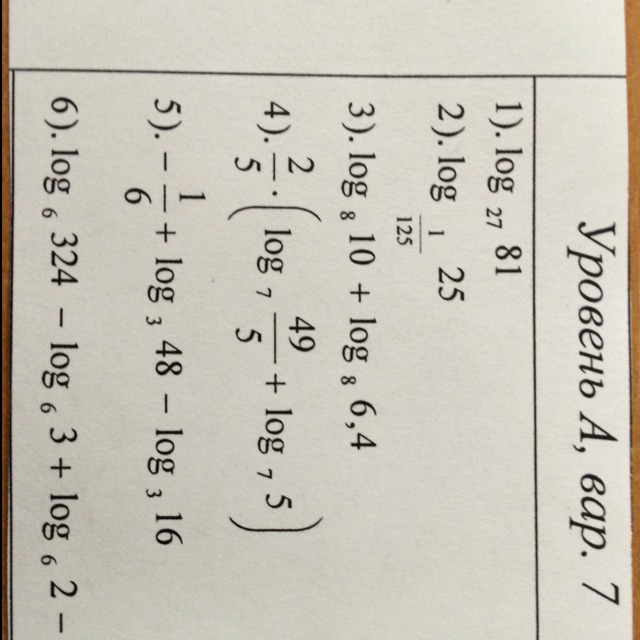 Уровень А, вар. 7
1). log ₂₇ 81
2). log _(1/125) 25
3). log ₈ 10 + log ₈ 6,4
4). 2/5 · ( log ₇ 49/5 + log ₇ 5 )
5). − 1/6 + log ₃ 48 − log ₃ 16
6). log ₆ 324 − log ₆ 3 + log ₆ 2 −